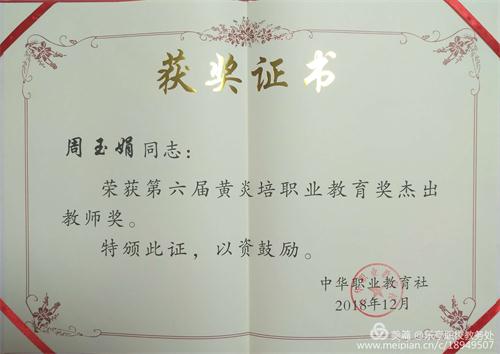 获奖证书
周玉娟同志：
荣获第六届黄炎培职业教育奖杰出
教师奖。
特颁此证，以资鼓励。
中华职业教育社
2018年12月
美篇 @乐亭职校教务处
www.meipian.cn/c/18949507